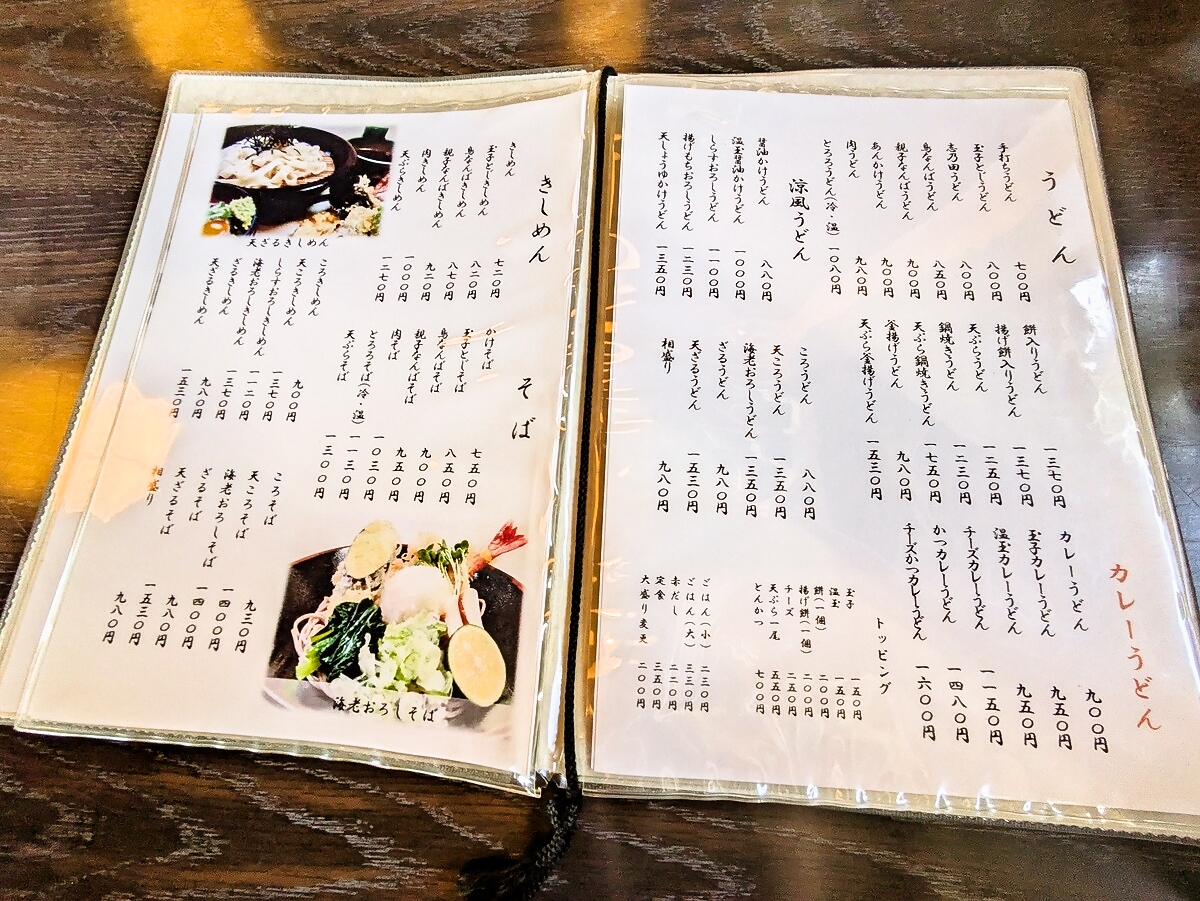 うどん
手打ちうどん 七〇〇円
玉子とじうどん 八〇〇円
志乃田うどん 八〇〇円
鳥なんばうどん 八五〇円
親子なんばうどん 九〇〇円
あんかけうどん 九〇〇円
肉うどん 九八〇円
とろろうどん(冷・温) 一〇八〇円
涼風うどん
醤油かけうどん 八八〇円
温玉醤油かけうどん 一〇〇〇円
しらすおろしうどん 一一〇〇円
揚げもちおろしうどん 一二三〇円
天しょうゆかけうどん 一三五〇円
餅入りうどん 一三七〇円
揚げ餅入りうどん 一三七〇円
天ぷらうどん 一二五〇円
鍋焼きうどん 一二三〇円
天ぷら鍋焼きうどん 一七五〇円
釜揚げうどん 九八〇円
天ぷら釜揚げうどん 一五三〇円
ころうどん 八八〇円
天ころうどん 一三五〇円
海老おろしうどん 一三五〇円
ざるうどん 九八〇円
天ざるうどん 一五三〇円
相盛り 九八〇円
カレーうどん
カレーうどん 九〇〇円
玉子カレーうどん 九五〇円
温玉カレーうどん 九五〇円
チーズカレーうどん 一一五〇円
かつカレーうどん 一四八〇円
チーズかつカレーうどん 一六〇〇円
トッピング
玉子 一五〇円
温玉 一五〇円
餅(一個) 二〇〇円
揚げ餅(一個) 二〇〇円
チーズ 二五〇円
天ぷら一尾 五五〇円
とんかつ 七〇〇円
ごはん(小) 二三〇円
ごはん(大) 三三〇円
赤だし 二二〇円
定食 三五〇円
大盛り変更 二〇〇円
きしめん
きしめん 七二〇円
玉子としきしめん 八二〇円
鳥なんばきしめん 八七〇円
親子なんばきしめん 九二〇円
肉きしめん 一〇〇〇円
天ぷらきしめん 一二七〇円
天ざるきしめん
ころきしめん 九〇〇円
天ころきしめん 一三七〇円
しらすおろしきしめん 一一二〇円
海老おろしきしめん 一三七〇円
ざるきしめん 九八〇円
天ざるきしめん 一五三〇円
そば
かけそば 七五〇円
玉子としそば 八五〇円
鳥なんばそば 九〇〇円
親子なんばそば 九五〇円
肉そば 一〇三〇円
とろろそば(冷・温) 一一三〇円
天ぷらそば 一三〇〇円
ころそば 九三〇円
天ころそば 一四〇〇円
海老おろしそば 一四〇〇円
ざるそば 九八〇円
天ざるそば 一五三〇円
相盛り 九八〇円
海老おろしそば